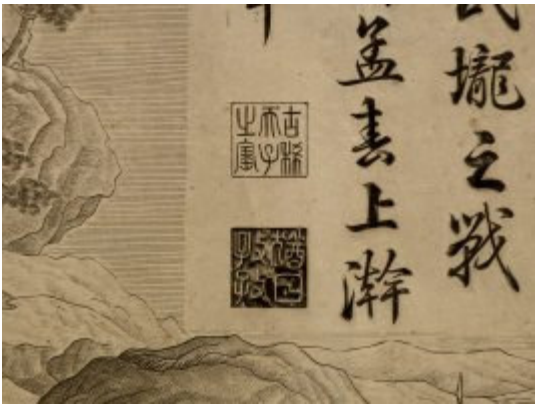 壠之戰
孟春上澣
古稀天子之寶
猶日孜孜